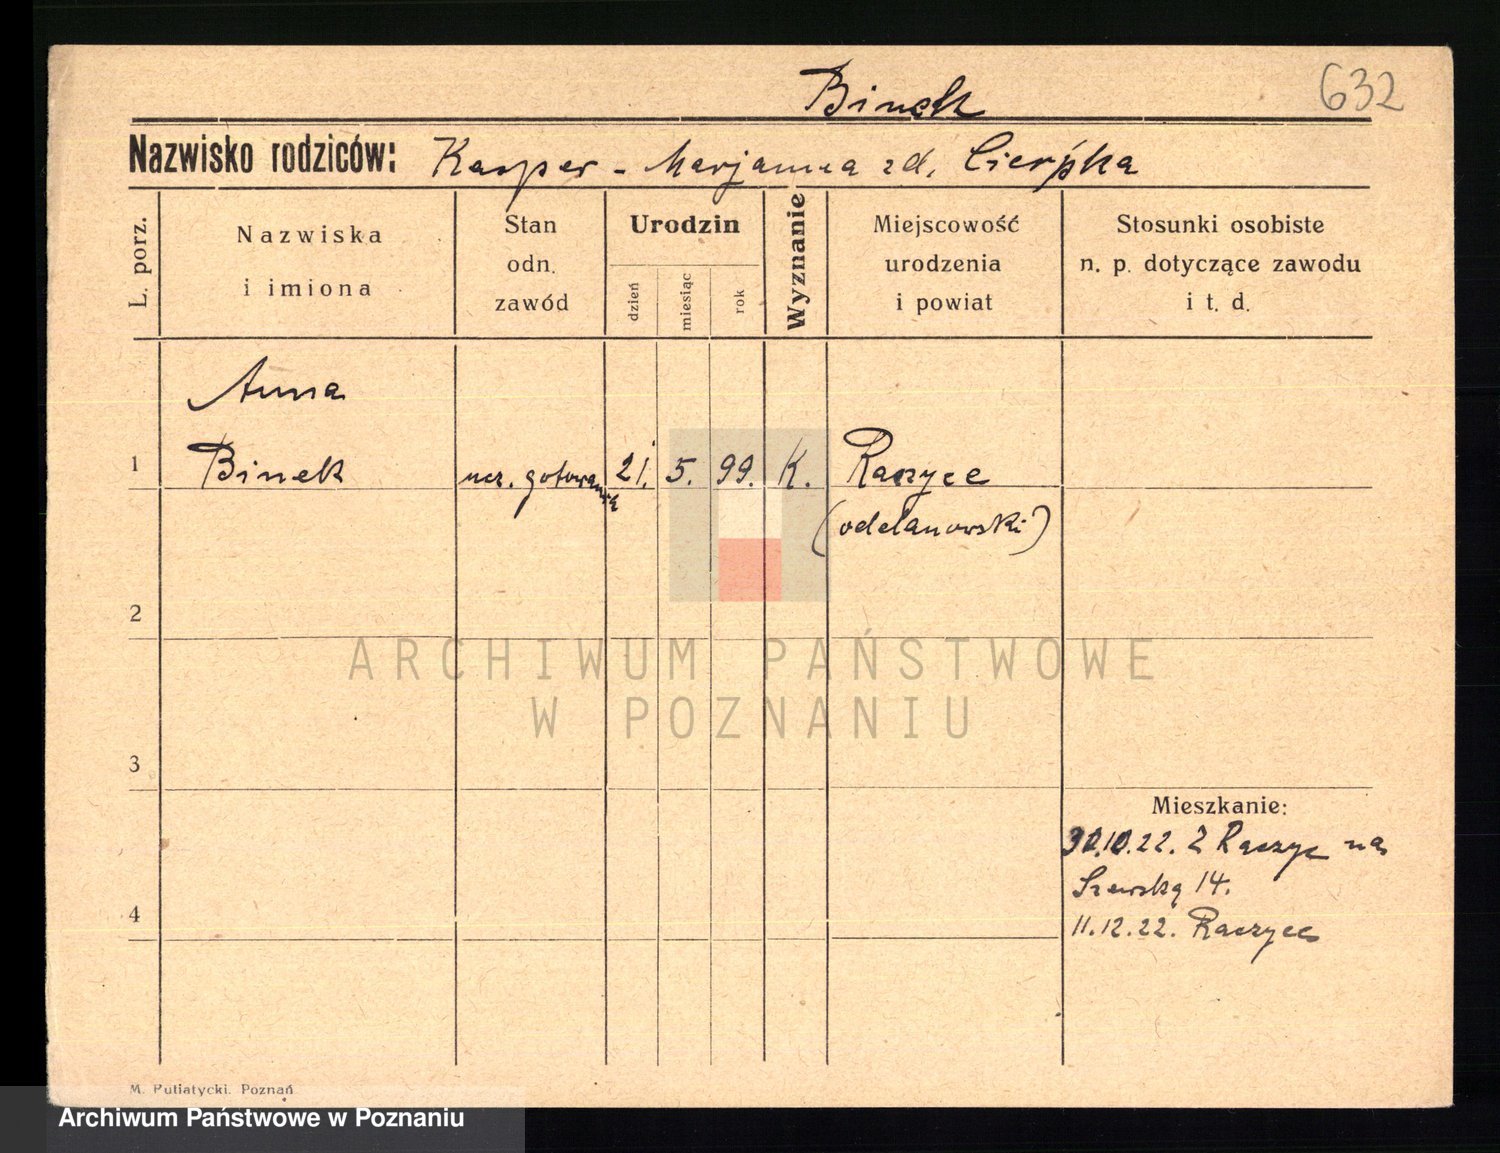 Binek
632
Nazwisko rodziców: Kasper - Marjanna zd. Cierpka
L. porz.
Nazwiska
i imiona
Stan
odn.
zawód
Urodzin
dzień
miesiąc
rok
Wyznanie
Miejscowość
urodzenia
i powiat
Stosunki osobiste
n. p. dotyczące zawodu
i t. d.
Anna
1 Binek ucz. gotowania 21. 5. 99. K. Raczyce
(odolanowski)
2
ARCHIWUM PAŃSTWOWE
W POZNANIU
3
Mieszkanie:
30.10.22. Z Raczyc na
Szewską 14.
4
11.12.22. Raczyce
M. Putiatycki. Poznań
Archiwum Państwowe w Poznaniu